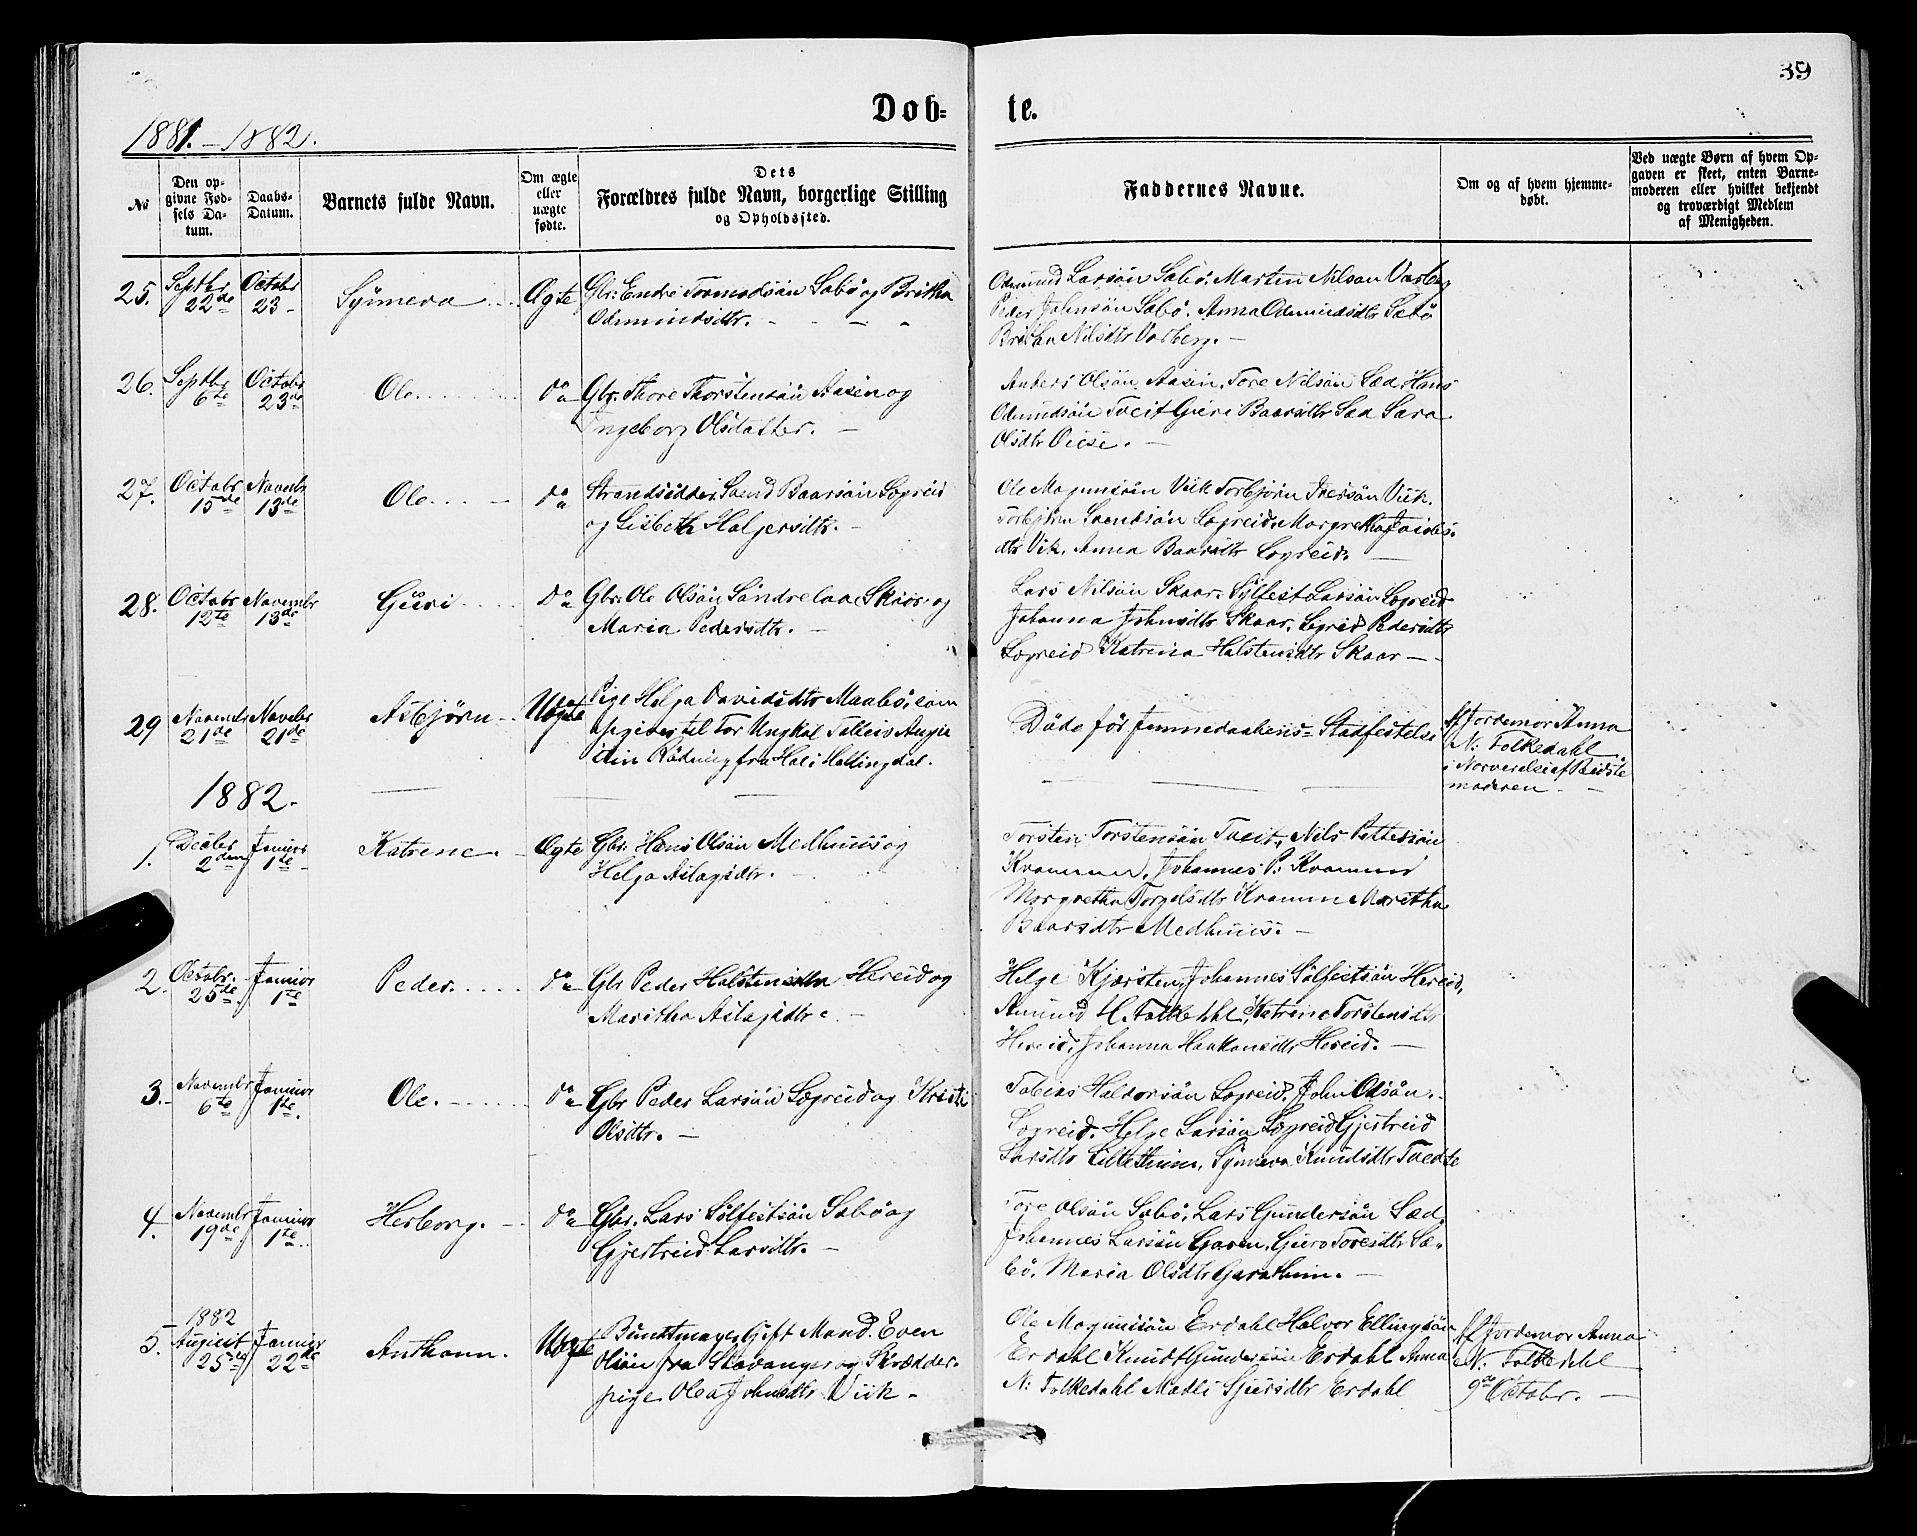 39
Døb- te.
1881.-1882.
No
Den op-
givne Fød-
sels Da-
tum.
Daabs-
Datum.
Barnets fulde Navn.
Om ægte
eller
uægte
fødte.
Dets
Forældres fulde Navn, borgerlige Stilling
og Opholdssted.
Faddernes Navne.
Om og af hvem hjemme-
døbt.
Ved uægte Børn af hvem Op-
gaven er skeet, enten Barne-
moderen eller hvilket bekjendt
og troværdigt Medlem
af Menigheden.
25. Septbr 22de Octobr 23 Synneva Ægte Gbr: Endre Tormodsön Sabö og Britha
Odmundsdtr.
Odmund Larsön Sabö. Marten Nilsön Varberg
Peder Johnsön Sabö. Anna Odmundsdtr Sæbö
Britha Nilsdtr Varberg.
26. Septbr 6te Octobr 23de Ole do Gbr. Thore Thorstensön Aasen og
Ingeborg Olsdatter.
Anders Olsön Aasen, Tore Nilsön Sæd Hans
Odmundsön Tveit Guri Baarsdtr Sæd Sara
Olsdtr
27. Octobr 15de Novembr 13de Ole do Strandsidder Svend Baarsön Legreid
og Lisbeth Holgersdtr.
Ole Magnusön Viik Torbjörn Iversön Viik.
Torbjörn Svendsön Legreid. Margretha Jacobs-
dtr Vik. Anna Baarsdtr Legreid.
28. Octobr 12te Novembr 13de Guri do Gbr. Ole Olsön Söndrelaa Skaar og
Maria Pedersdtr.
Lars Nilsön Skaar. Sylfest Larsön Legreid
Johanna Johnsdtr Skaar. Sigrid Pedersdtr
Legreid Katrina Halstensdtr Skaar
29 Novembr 21de Novebr 21de Asbjörn Uægte Pige Helga Davidsdtr Maabö, som
opgives til Far Ungkal Tolleiv
fra Hol i Hallingdal.
Döde för Jemmedaabens Stadfestelse
Af Jordemor Anna
N: Folkedahl
i Nærverelse af Bedste
moderen
1882.
1. Decbr 2den Januar 1te Katrine. Ægte Gbr. Hans Olsön Medhuus og
Helga Aslagsdtr.
Torsten Torstensön Tveit, Nils Pettersön
Kramme, Johannes P: Kramme
Margretha Torgelsdtr Kramme Maritha
Baarsdtr Medhuus.
2. Octobr. 25de Januar 1te Peder. do Gbr Peder Halstensön Hereid og
Maritha Aslagsdtr
Helge Kjærsten, Johannes Sölfestsön Hereid,
Amund H. Folkedahl, Katrine Torstensdtr
Hereid, Johanna Haakonsdtr Hereid.
3. Novembr 6te Januar 1te. Ole. do Gbr Peder Larsön Legreid og Kristi
Olsdtr.
Tobias Haldorsön Legreid. John Olsön
Legreid. Helge Larsön Legreid Gjertreid
Larsdtr Lilletuun, Synneva Knudsdtr Tvedte
4. Novembr 19de Januar 1te Herborg. do Gbr. Lars Sölfestsön Sabö og
Gjertreid Larsdtr.
Tore Olsön Sabö, Lars Gundersön Sæd,
Johannes Larsön Garen. Guro Toresdtr Sæ-
bö. Maria Olsdtr Garathun.
5. 1882 August 25de Januar 22de Anthonn. Uægte Bundtmager Gift Mand. Even
Olsön fra Stavanger og Skrædder-
pige Olea Johnsdtr Viik.
Ole Magnusön Erdahl Halvor Ellingsön
Erdahl Knudt Gundersön Erdahl Anna
N: Folkedahl Madli Sjursdtr Erdahl
Af Jordemor Anna
N. Folkedahl
9de Octobr.